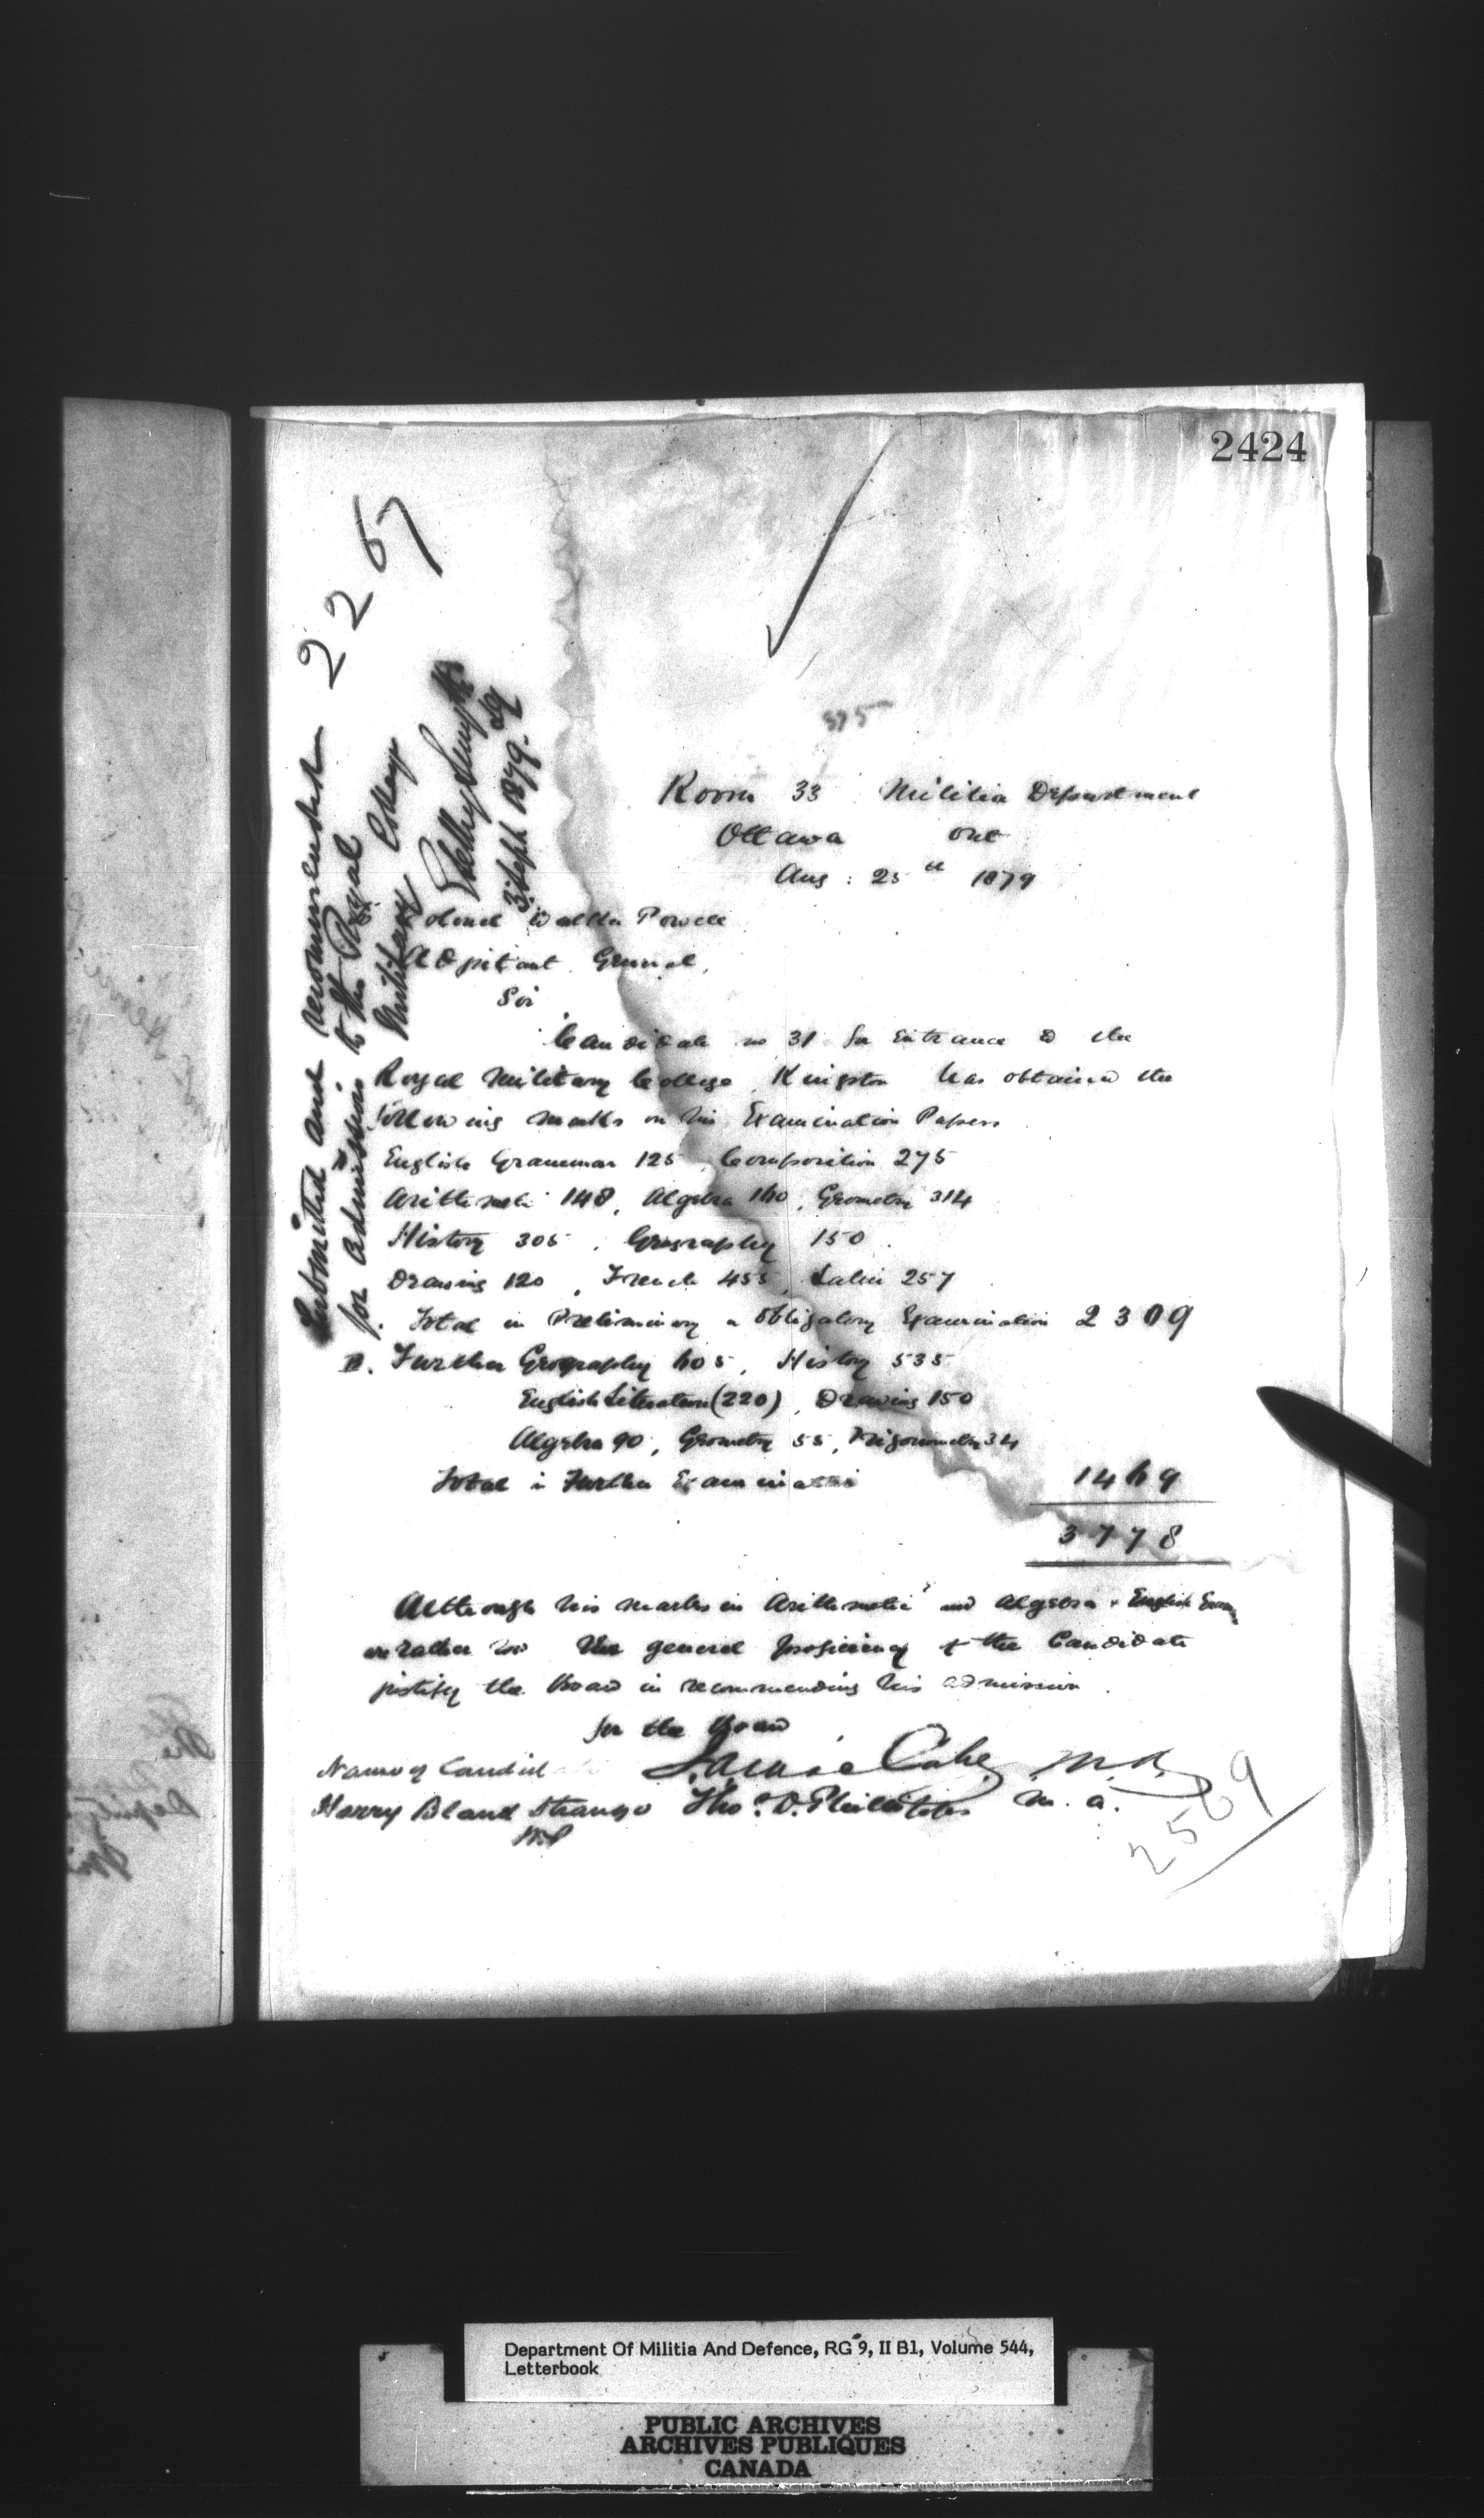 2424
2267
Submitted and recommended
for admission to the Royal
Military College
3 Sept 1879.
375
Room 33 Militia Department
Ottawa Ont
Aug : 25th 1879
Colonel Walker Powell
Adjutant General,
Sir
Candidate no 31 for Entrance to the
Royal Military College, Kingston has obtained the
following marks on his Examination Papers
English Grammar 125, Composition 275
Arithmetic 148, Algebra 160, Geometry 314
History 305, Geography 150
Drawing 120, French 455, Latin 257
Total in Preliminary or Obligatory Examination 2309
II. Further Geography 605, History 535
English Literature (220), Drawing 150
Algebra 90, Geometry 55, Trigonometry 34
Total in Further Examination 1469
3778
Although his marks in Arithmetic and Algebra & English Gram
are rather low the general proficiency of the Candidate
justify the Board in recommending his admission.
for the Board
Name of Candidate
Harry Bland Strange Thos. D. Phillipps M.A.
2569
Department Of Militia And Defence, RG 9, II B1, Volume 544,
Letterbook
PUBLIC ARCHIVES
ARCHIVES PUBLIQUES
CANADA